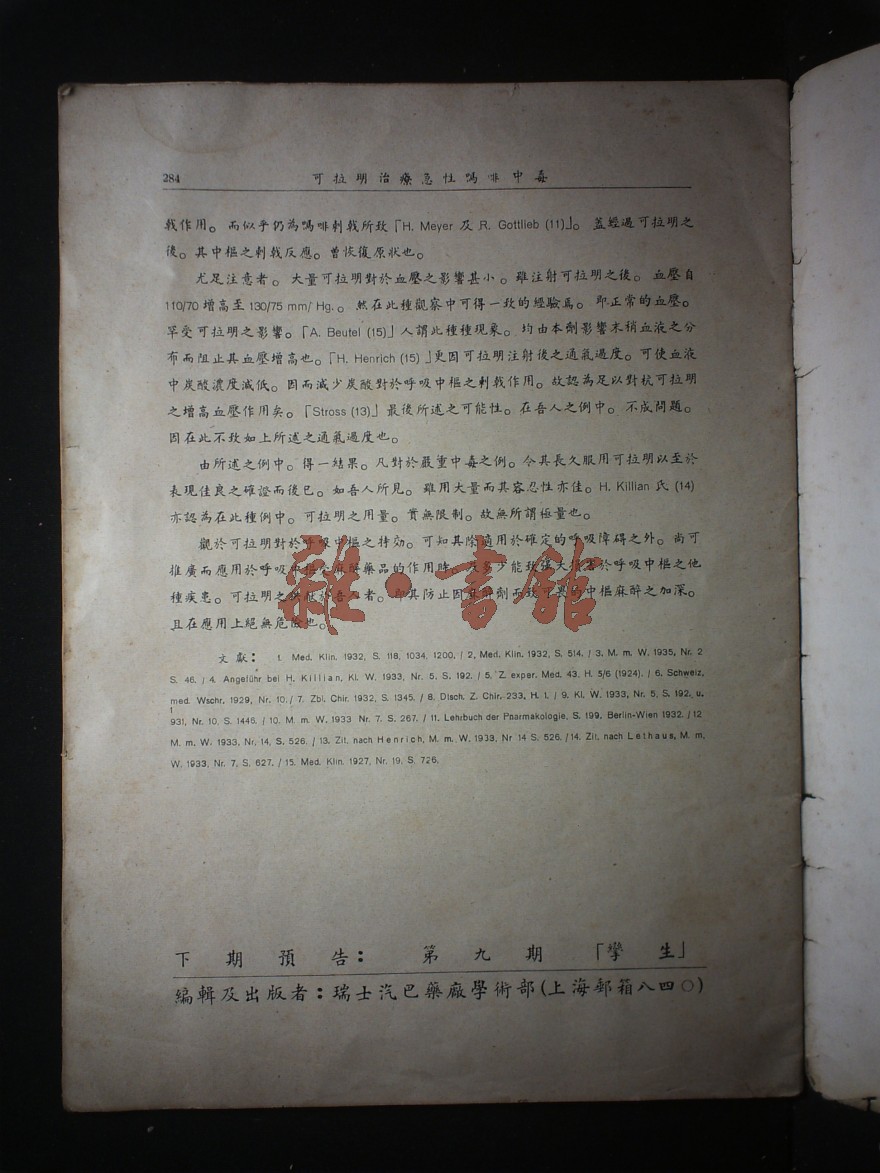 284 可拉明治療急性嗎啡中毒
戟作用。而似乎仍為嗎啡刺戟所致「H. Meyer 及 R. Gottlieb (11)」。蓋經過可拉明之
後。其中樞之刺戟反應。曾恢復原狀也。
尤足注意者。大量可拉明對於血壓之影響甚小。雖注射可拉明之後。血壓自
110/70 增高至 130/75 mm/ Hg.。然在此種觀察中可得一致的經驗焉。即正常的血壓。
罕受可拉明之影響。「A. Beutel (15)」人謂此種種現象。均由本劑影響末稍血液之分
布而阻止其血壓增高也。「H. Henrich (15) 」更因可拉明注射後之通氣過度。可使血液
中炭酸濃度減低。因而減少炭酸對於呼吸中樞之刺戟作用。故認為足以對抗可拉明
之增高血壓作用矣。「Stross (13)」最後所述之可能性。在吾人之例中。不成問題。
因在此不致如上所述之通氣過度也。
由所述之例中。得一結果。凡對於嚴重中毒之例。令其長久服用可拉明以至於
表現佳良之確證而後已。如吾人所見。雖用大量而其容忍性亦佳。H. Killian 氏 (14)
亦認為在此種例中。可拉明之用量。實無限制。故無所謂極量也。
觀於可拉明對於呼吸中樞之特効。可知其除適用於確定的呼吸障碍之外。尚可
推廣而應用於呼吸中樞 麻醉藥品的作用時。及多少能致 大 於呼吸中樞之他
種疾患。可拉明之 者。即其防止因麻醉劑而致可畏的中樞麻醉之加深。
且在應用上絕無危險也。
文獻： 1. Med. Klin. 1932, S. 118, 1034, 1200. / 2, Med. Klin. 1932, S. 514. / 3. M. m. W. 1935, Nr. 2
S. 46. / 4. Angeführ bei H. Killian, Kl. W. 1933, Nr. 5, S. 192. / 5. Z. exper. Med. 43. H. 5/6 (1924). / 6. Schweiz,
med. Wschr. 1929, Nr. 10. / 7. Zbl. Chir. 1932, S. 1345. / 8. Dtsch. Z. Chir. 233, H. 1. / 9. Kl. W. 1933, Nr. 5, S. 192. u.
1
931, Nr. 10, S. 1446. / 10. M. m. W. 1933 Nr. 7, S. 267. / 11. Lehrbuch der Pnarmakologie, S. 199. Berlin-Wien 1932. / 12
M. m. W. 1933, Nr. 14, S. 526. / 13. Zit. nach Henrich, M. m. W. 1933, Nr 14 S. 526. / 14. Zit. nach Lethaus, M. m.
W. 1933, Nr. 7, S. 627. / 15. Med. Klin. 1927, Nr. 19, S. 726.
雜·書館
下期預告： 第九期 「孿生」
編輯及出版者：瑞士汽巴藥廠學術部(上海郵箱八四〇)